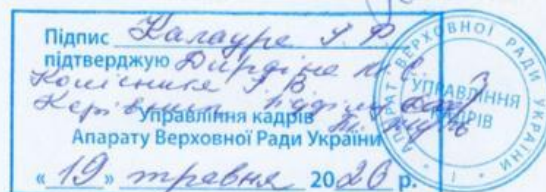 Підпис Калаур І. Р.
підтверджую
Колісника І. В.
Керівник
Управління кадрів
Апарату Верховної Ради України
« 19 » травня 2020 р.
АПАРАТ ВЕРХОВНОЇ РАДИ УКРАЇНИ
УПРАВЛІННЯ
КАДРІВ